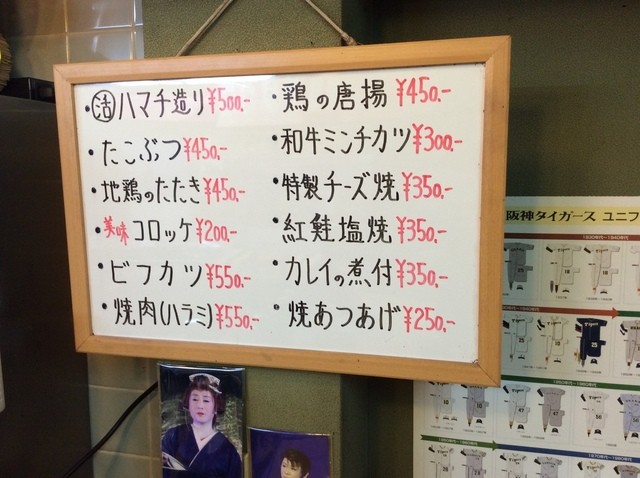 ・活ハマチ造り¥500.-
・たこぶつ¥450.-
・地鶏のたたき¥450.-
・美味コロッケ¥200.-
・ビフカツ¥550.-
・焼肉(ハラミ)¥550.-
・鶏の唐揚¥450.-
・和牛ミンチカツ¥300.-
・特製チーズ焼¥350.-
・紅鮭塩焼¥350.-
・カレイの煮付¥350.-
・焼あつあげ¥250.-
阪神タイガース ユニフ